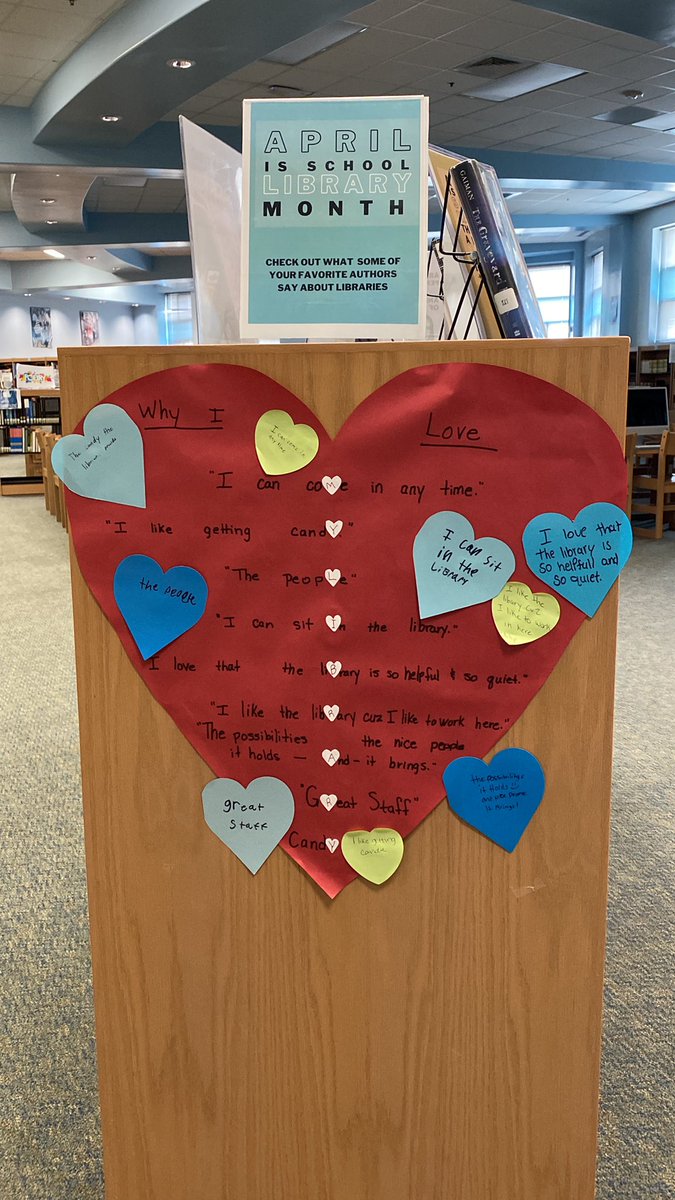 APRIL
IS SCHOOL
LIBRARY
MONTH
CHECK OUT WHAT SOME OF
YOUR FAVORITE AUTHORS
SAY ABOUT LIBRARIES
GAIMAN The Graveyard
S21
Why I Love
"I can come in any time."
"I like getting candy"
"The people"
"I can sit in the library."
I love that the library is so helpful & so quiet."
"I like the library cuz I like to work here."
"The possibilities the nice people
it holds — And - it brings."
"Great Staff"
Candy
The candy the
I can come in
any time
the people
I can sit
in the
Library
I love that
the library is
so helpfull and
so quiet.
I like the
library cuz
I like to work
in here
great
staff
the possibilities
it holds
and nice people
it brings!
I like getting